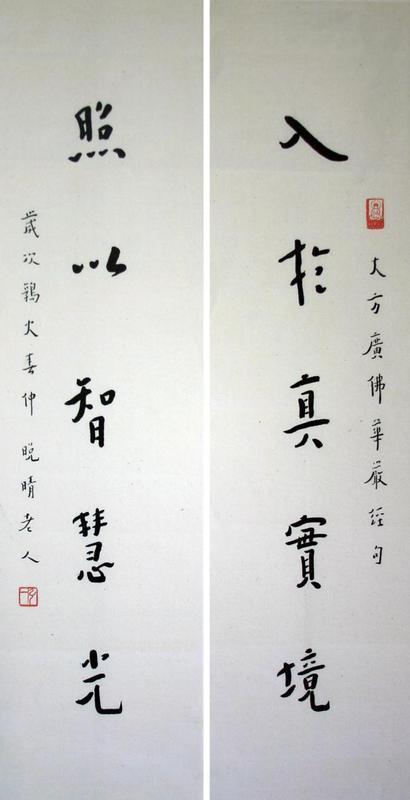 大方廣佛華嚴經句
入於真實境
照以智慧光
歲次鶉火春仲晚晴老人